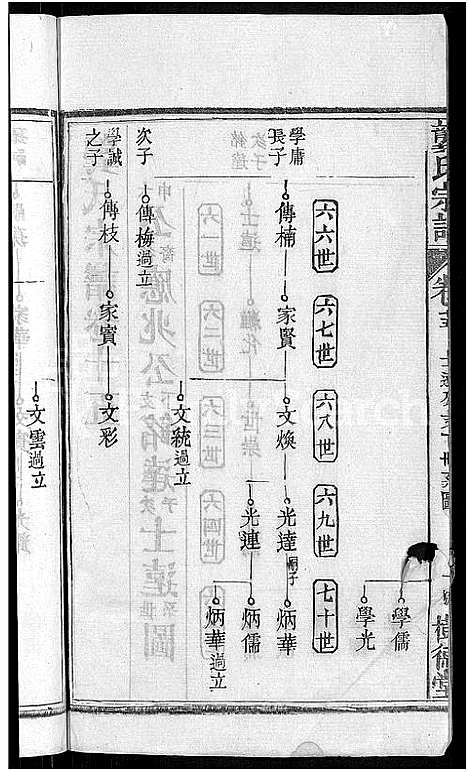 龔氏宗譜
卷
樹德堂
學儒
學光
六六世
六七世
六八世
六九世
七十世
學庸長子
傳楠
家賢
文煥
光達嗣子
炳華
光連
炳儒
炳華過立
文統過立
次子
傳梅過立
學誠之子
傳枝
家賓
文彩
文雲過立